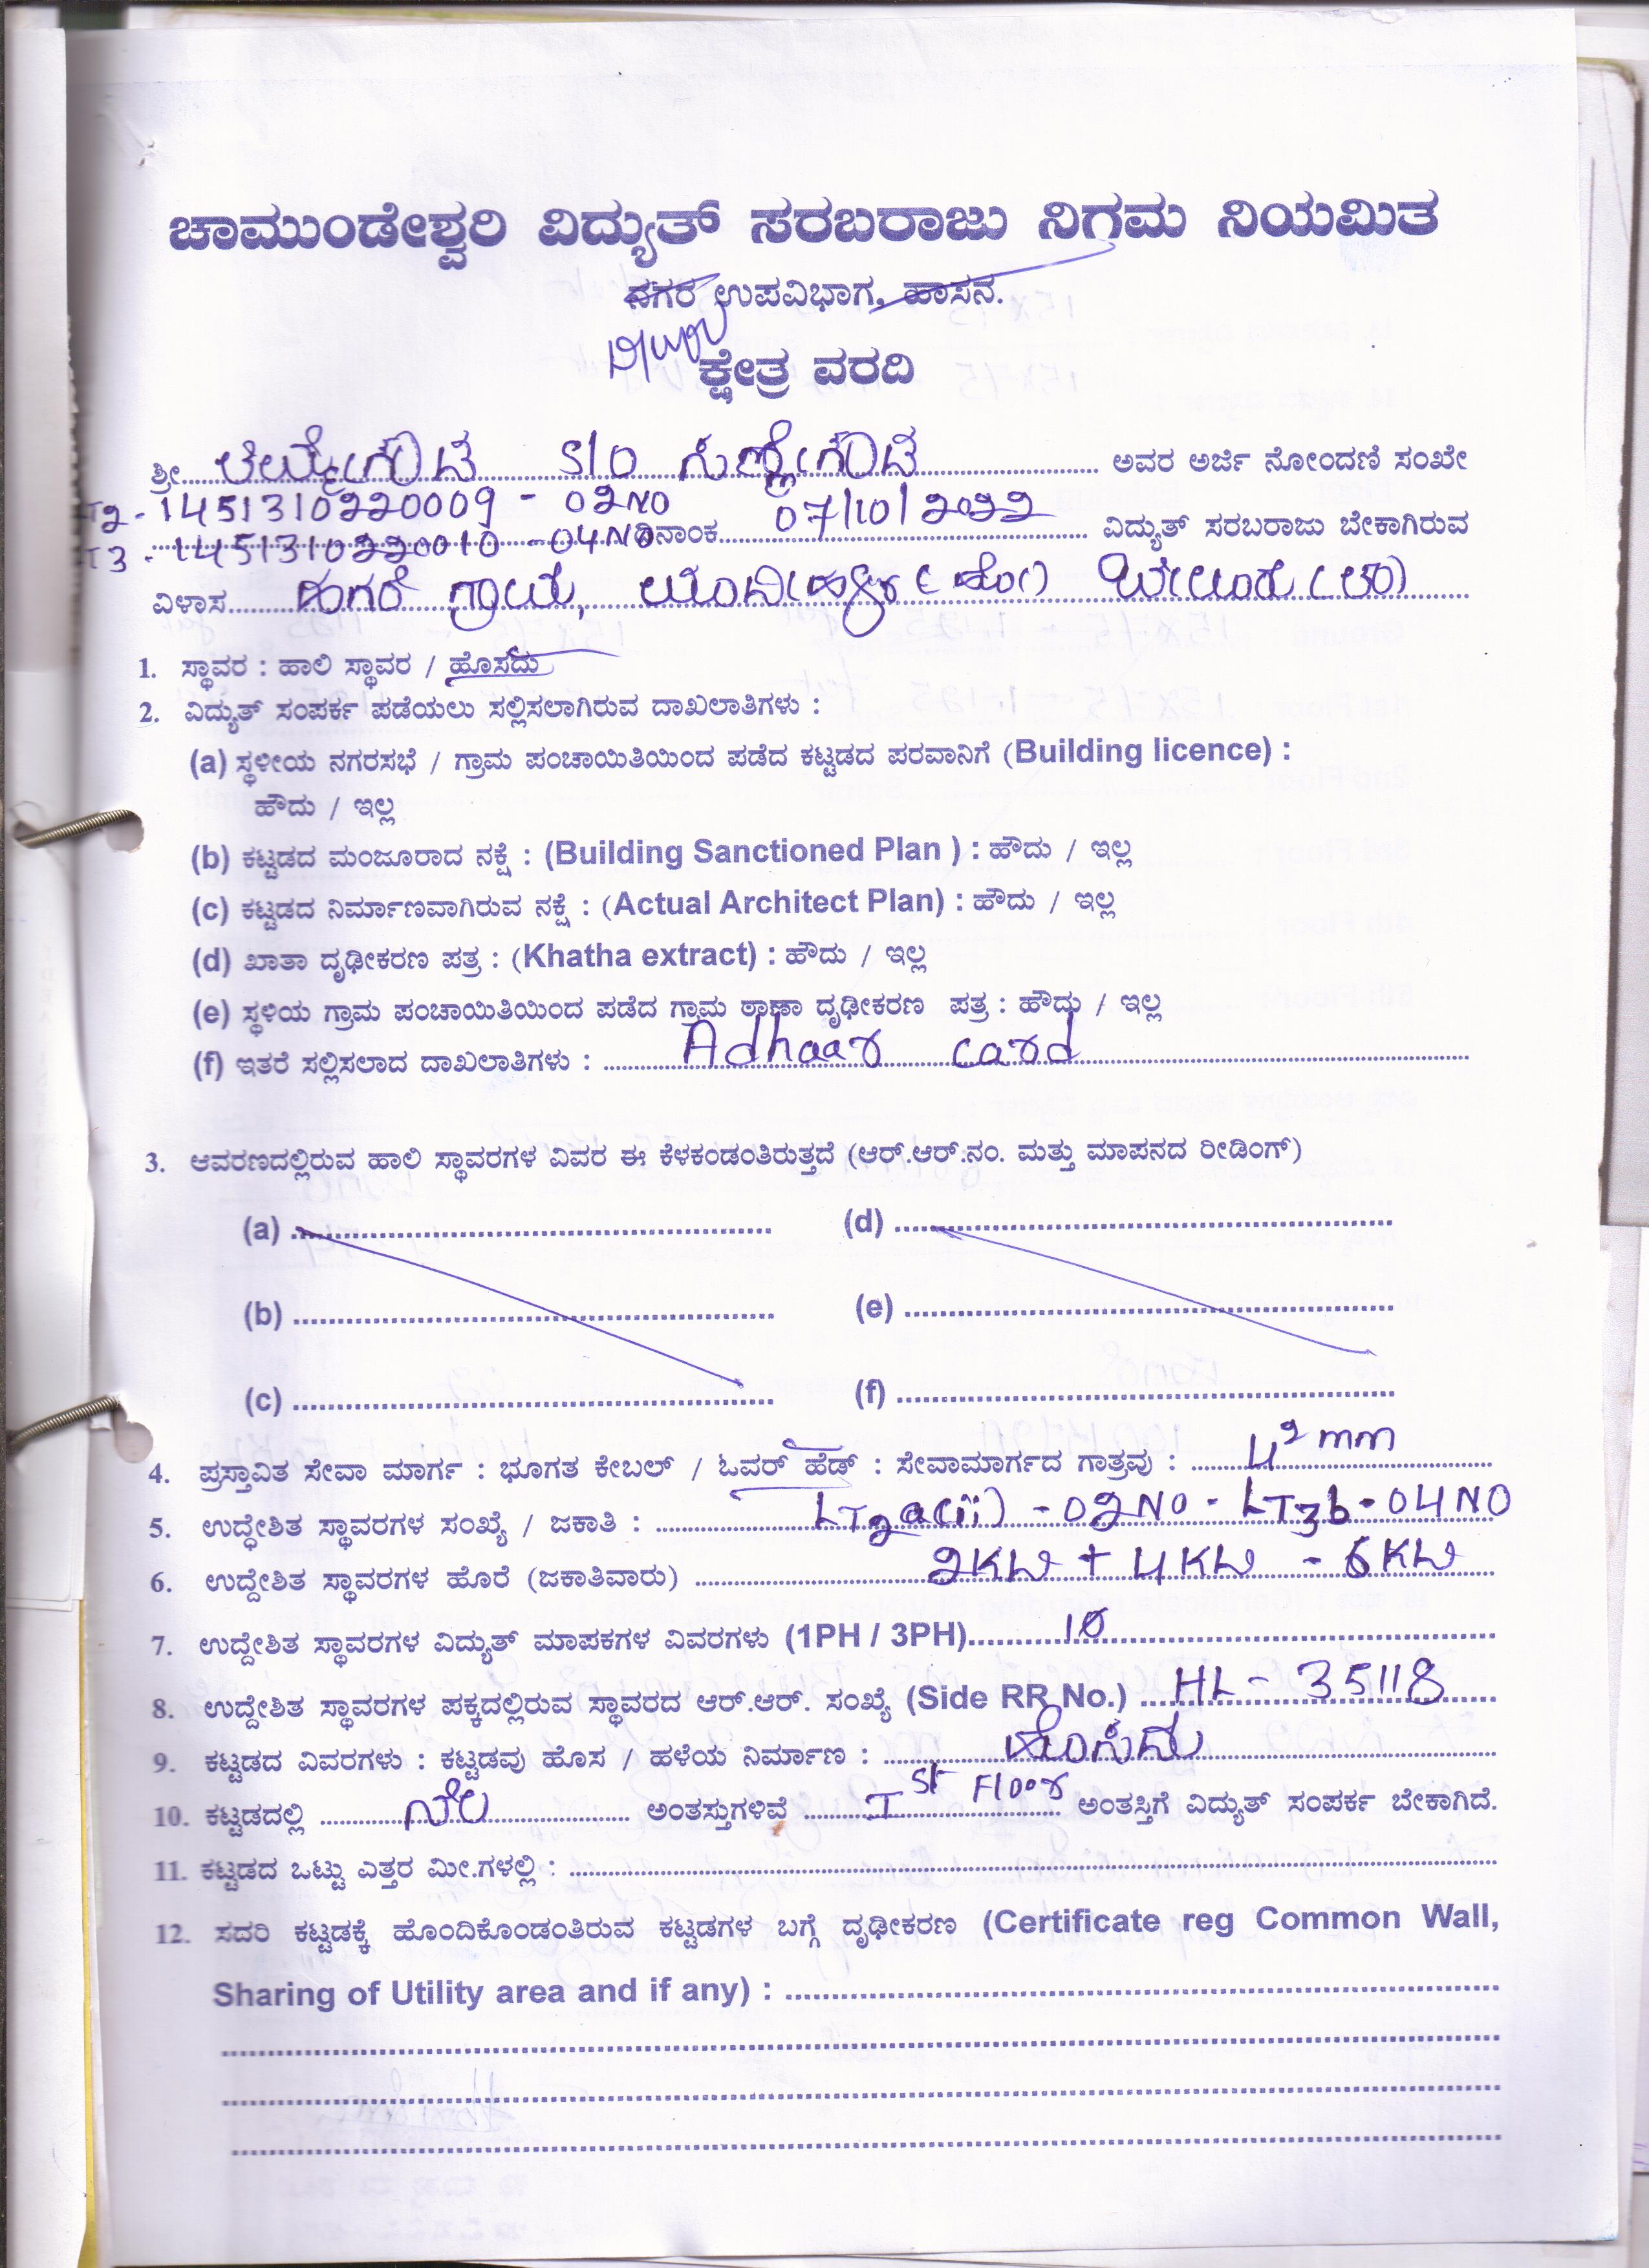 ಚಾಮುಂಡೇಶ್ವರಿ ವಿದ್ಯುತ್ ಸರಬರಾಜು ನಿಗಮ ನಿಯಮಿತ
ನಗರ ಉಪವಿಭಾಗ, ಹಾಸನ.
ಕ್ಷೇತ್ರ ವರದಿ
ಶ್ರೀ S/O ಅವರ ಅರ್ಜಿ ನೋಂದಣಿ ಸಂಖೇ
T2-1451310220009 - 02NO
T3-1451310220010 -04NO ದಿನಾಂಕ 07/10/2022 ವಿದ್ಯುತ್ ಸರಬರಾಜು ಬೇಕಾಗಿರುವ
ವಿಳಾಸ ಹಗರೆ ಗ್ರಾಮ, ಬೇಲೂರು (ತಾ)
1. ಸ್ಥಾವರ : ಹಾಲಿ ಸ್ಥಾವರ / ಹೊಸದು
2. ವಿದ್ಯುತ್ ಸಂಪರ್ಕ ಪಡೆಯಲು ಸಲ್ಲಿಸಲಾಗಿರುವ ದಾಖಲಾತಿಗಳು :
(a) ಸ್ಥಳೀಯ ನಗರಸಭೆ / ಗ್ರಾಮ ಪಂಚಾಯಿತಿಯಿಂದ ಪಡೆದ ಕಟ್ಟಡದ ಪರವಾನಿಗೆ (Building licence) :
ಹೌದು / ಇಲ್ಲ
(b) ಕಟ್ಟಡದ ಮಂಜೂರಾದ ನಕ್ಷೆ : (Building Sanctioned Plan ) : ಹೌದು / ಇಲ್ಲ
(c) ಕಟ್ಟಡದ ನಿರ್ಮಾಣವಾಗಿರುವ ನಕ್ಷೆ : (Actual Architect Plan) : ಹೌದು / ಇಲ್ಲ
(d) ಖಾತಾ ದೃಢೀಕರಣ ಪತ್ರ : (Khatha extract) : ಹೌದು / ಇಲ್ಲ
(e) ಸ್ಥಳಿಯ ಗ್ರಾಮ ಪಂಚಾಯಿತಿಯಿಂದ ಪಡೆದ ಗ್ರಾಮ ಠಾಣಾ ದೃಢೀಕರಣ ಪತ್ರ : ಹೌದು / ಇಲ್ಲ
(f) ಇತರೆ ಸಲ್ಲಿಸಲಾದ ದಾಖಲಾತಿಗಳು : Adhaar card
3. ಆವರಣದಲ್ಲಿರುವ ಹಾಲಿ ಸ್ಥಾವರಗಳ ವಿವರ ಈ ಕೆಳಕಂಡಂತಿರುತ್ತದೆ (ಆರ್.ಆರ್.ನಂ. ಮತ್ತು ಮಾಪನದ ರೀಡಿಂಗ್)
(a) (d)
(b) (e)
(c) (f)
4. ಪ್ರಸ್ತಾವಿತ ಸೇವಾ ಮಾರ್ಗ : ಭೂಗತ ಕೇಬಲ್ / ಓವರ್ ಹೆಡ್ : ಸೇವಾಮಾರ್ಗದ ಗಾತ್ರವು : 4² mm
5. ಉದ್ಧೇಶಿತ ಸ್ಥಾವರಗಳ ಸಂಖ್ಯೆ / ಜಕಾತಿ : LT2a(ii) - 02NO - LT3b - 04NO
6. ಉದ್ದೇಶಿತ ಸ್ಥಾವರಗಳ ಹೊರೆ (ಜಕಾತಿವಾರು) 2KW + 4KW - 6KW
7. ಉದ್ದೇಶಿತ ಸ್ಥಾವರಗಳ ವಿದ್ಯುತ್ ಮಾಪಕಗಳ ವಿವರಗಳು (1PH / 3PH) 1Ø
8. ಉದ್ದೇಶಿತ ಸ್ಥಾವರಗಳ ಪಕ್ಕದಲ್ಲಿರುವ ಸ್ಥಾವರದ ಆರ್.ಆರ್. ಸಂಖ್ಯೆ (Side RR No.) HL - 35118
9. ಕಟ್ಟಡದ ವಿವರಗಳು : ಕಟ್ಟಡವು ಹೊಸ / ಹಳೆಯ ನಿರ್ಮಾಣ : ಹೊಸದು
10. ಕಟ್ಟಡದಲ್ಲಿ ನೆಲ ಅಂತಸ್ತುಗಳಿವೆ I st Floor ಅಂತಸ್ತಿಗೆ ವಿದ್ಯುತ್ ಸಂಪರ್ಕ ಬೇಕಾಗಿದೆ.
11. ಕಟ್ಟಡದ ಒಟ್ಟು ಎತ್ತರ ಮೀ.ಗಳಲ್ಲಿ :
12. ಸದರಿ ಕಟ್ಟಡಕ್ಕೆ ಹೊಂದಿಕೊಂಡಂತಿರುವ ಕಟ್ಟಡಗಳ ಬಗ್ಗೆ ದೃಢೀಕರಣ (Certificate reg Common Wall,
Sharing of Utility area and if any) :